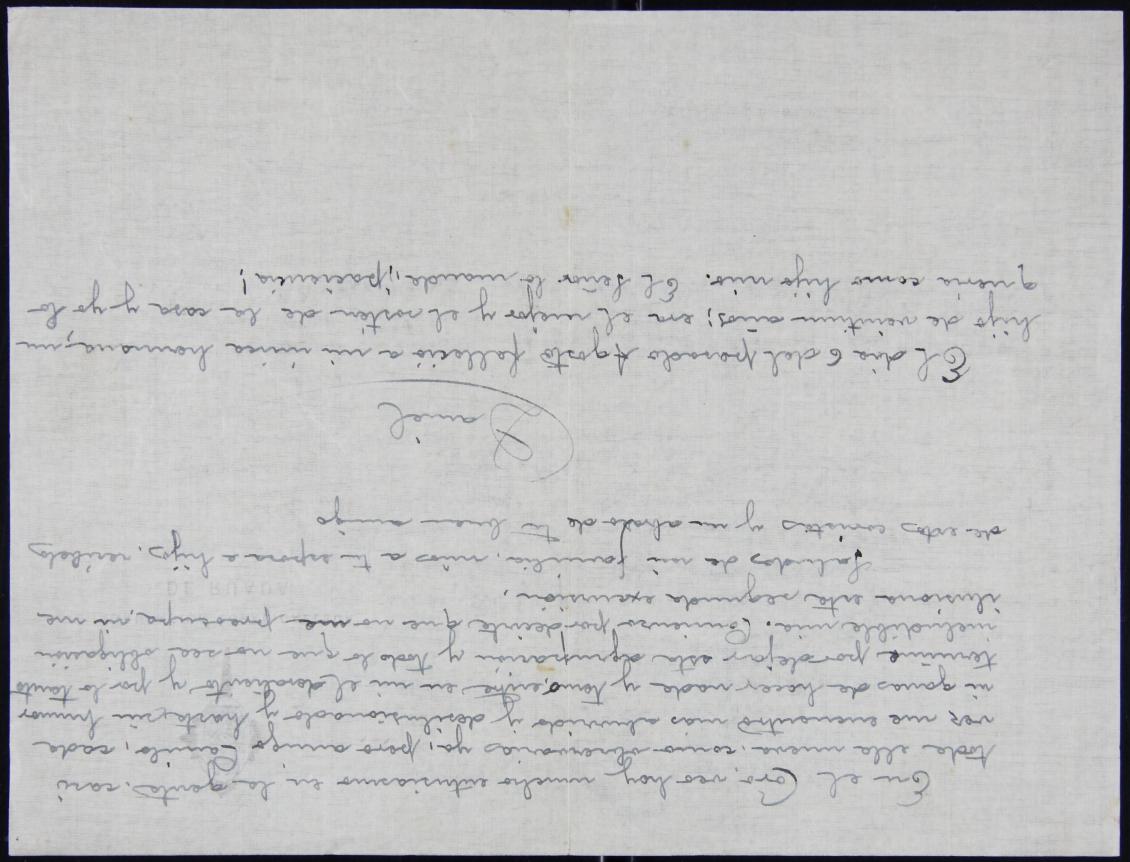 En el Coro, veo hoy mucho entusiasmo en la gente, casi
toda ella nueva, como observarias ya; pero amigo Camilo, cada
vez me encuentro mas aburrido y desilusionado y hasta, sin humor
ni ganas de hacer nada y tomo, entre en mi el desaliento y por lo tanto
termine por dejar esta agrupación y todo lo que no sea obligación
ineludible mia. Comienzo por decirte que no me preocupa, ni me
ilusiona esta segunda excursión;
DE RUADA
Saludos de mi familia, mios a tu esposa e hijos, recibelos
de estos coristas y un abrazo de tu buen amigo
Daniel
El dia 6 del pasado Agosto falleció a mi unica hermana, un
hijo de veintiun años; era el mejor y el sostén de la casa y yo lo
queria como hijo mio. El Señor lo manda, ¡paciencia!